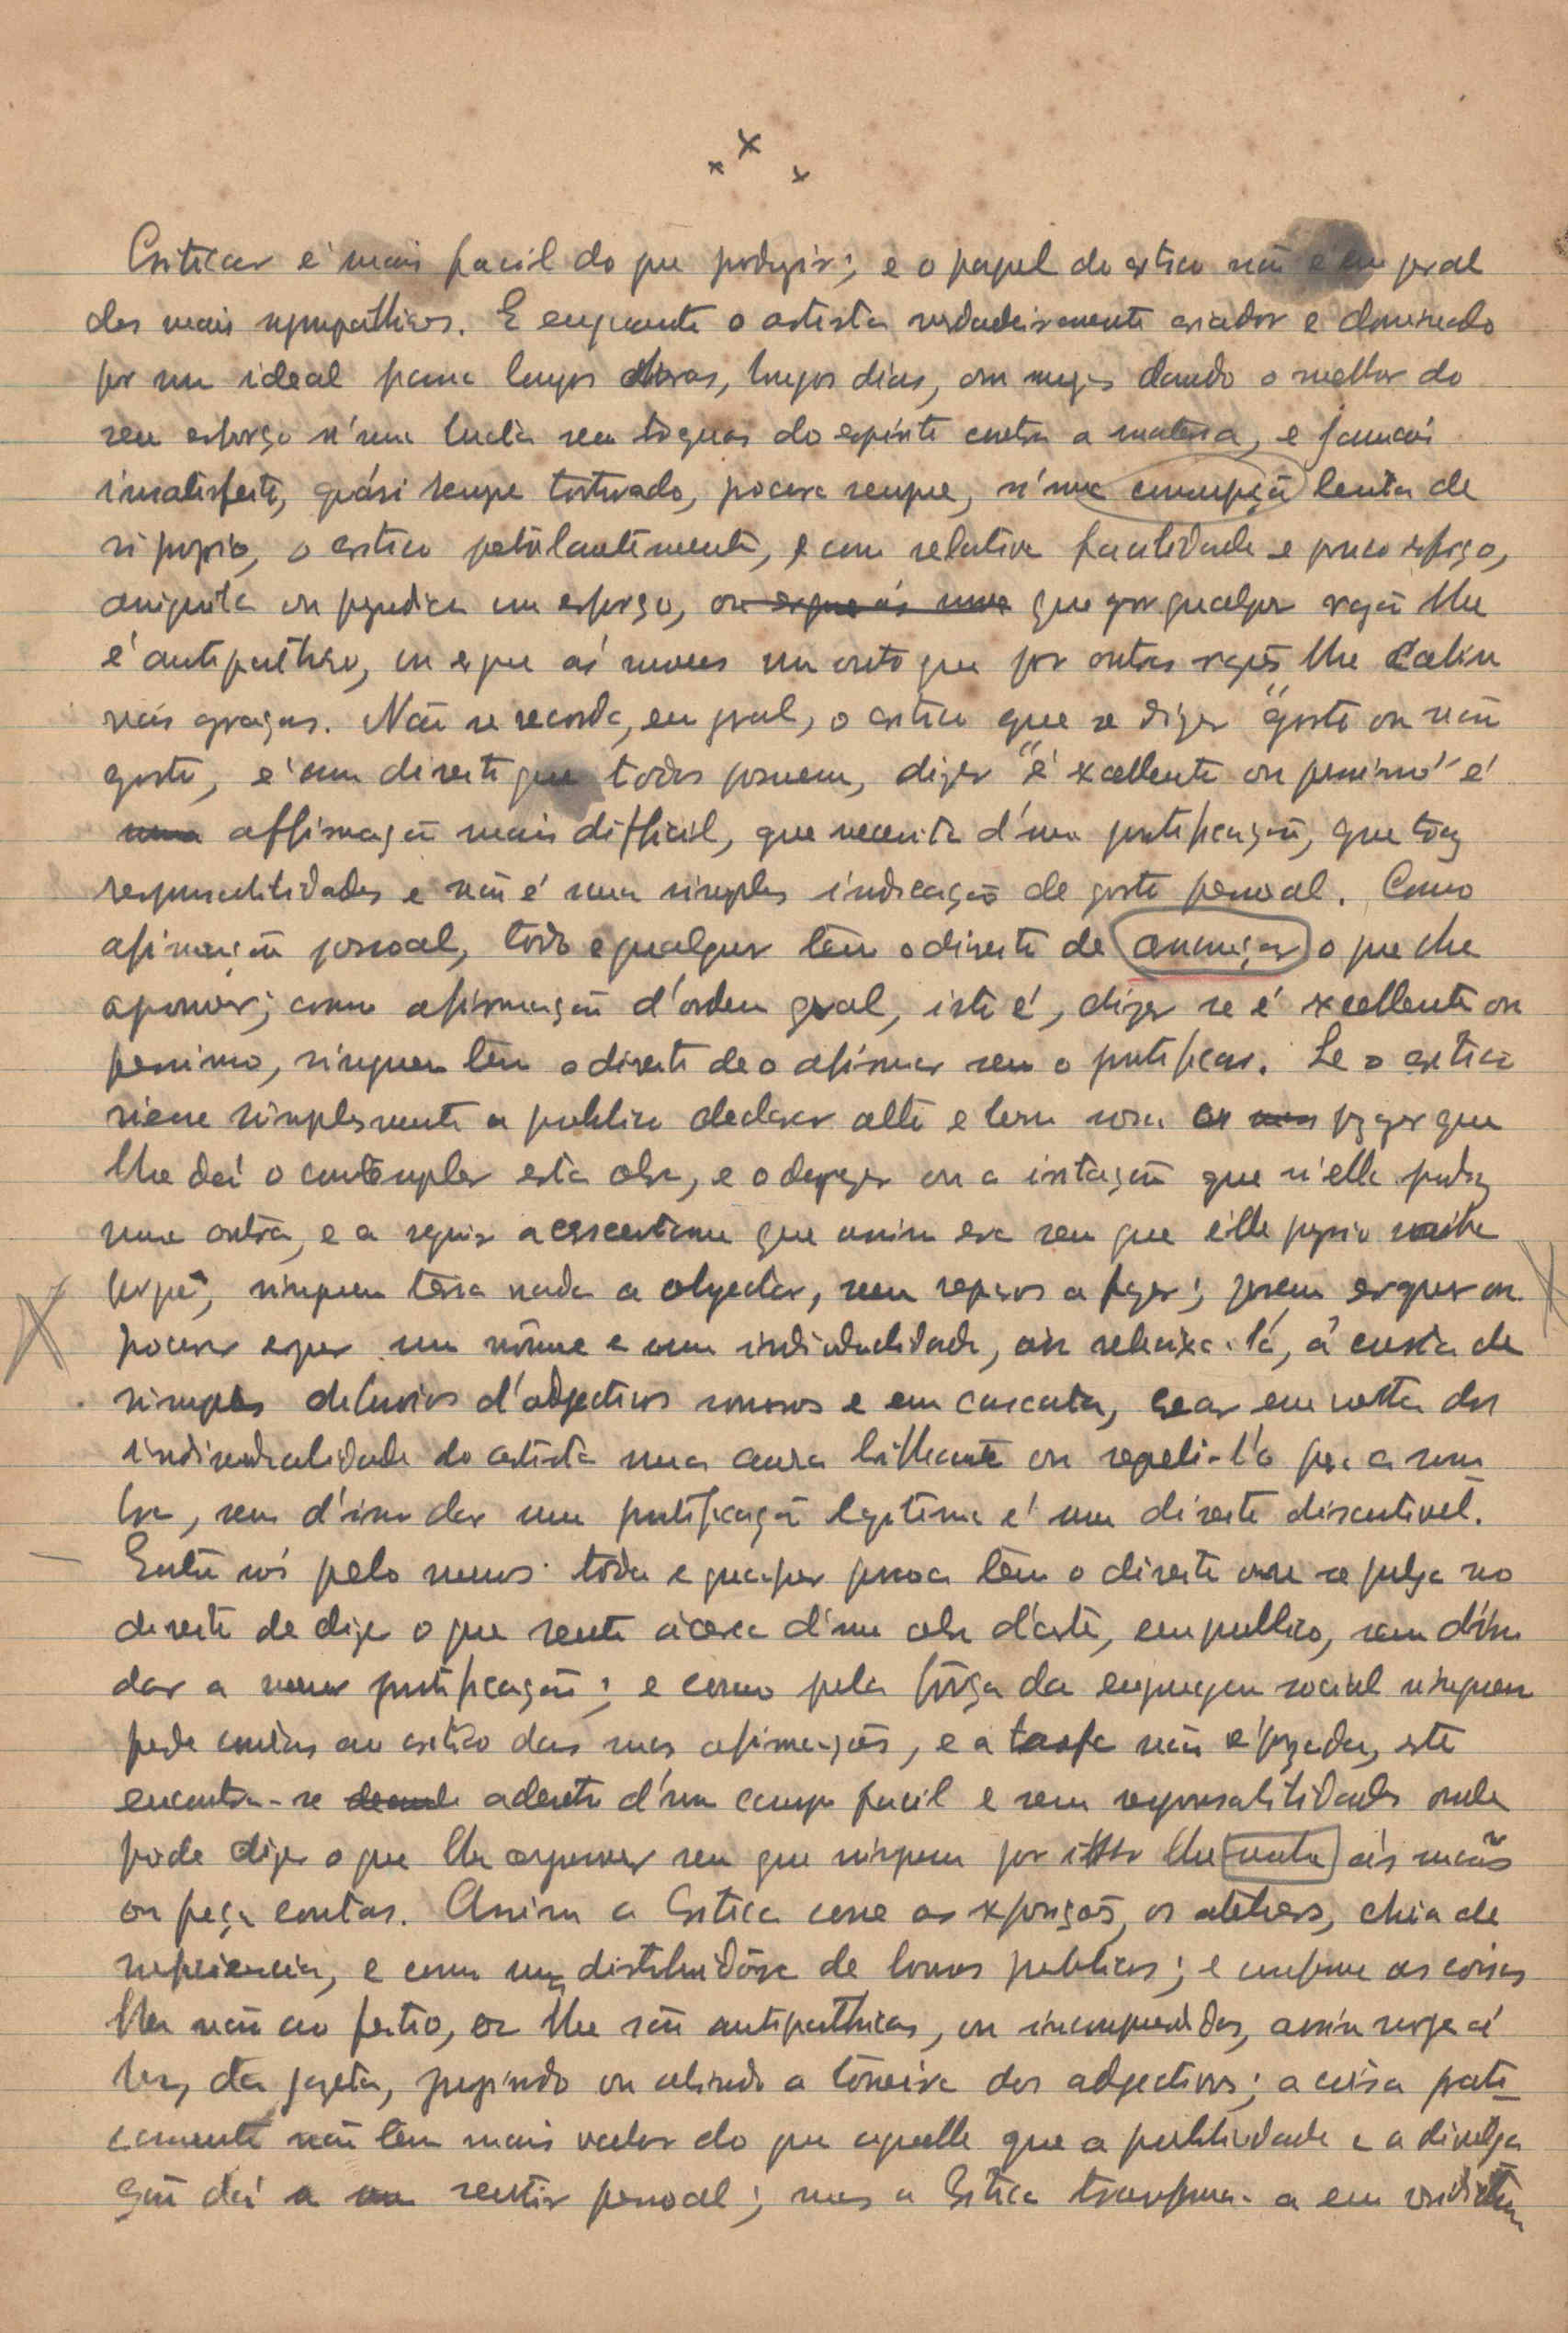 Criticar é mais facil do que produzir; e o papel do critico não é em geral
dos mais sympathicos. E emquanto o artista verdadeiramente criador e dominado
por um ideal passa longas horas, longos dias, ou mezes dando o melhor do
seu esforço n'uma lucta sem treguas do espirito contra a materia, e jamais
insatisfeito, quási sempre torturado, procura sempre, n'uma lenta de
si proprio, o critico petulantemente, e com relativa facilidade e pouco esforço,
aniquila ou prejudica um esforço, que por qualquer razão lhe
é antipathico, ou ergue ás nuvens um outro que por outras razões lhe cahiu
nas graças. Não se recorda, em geral, o critico que se dizer "gosto ou não
gosto, é um direito que todos possuem, dizer "é excellente ou pessimo" é
affirmação mais difficil, que necessita d'uma justificação, que traz
responsabilidades e não é uma simples indicação de gosto pessoal. Como
afirmação pessoal, todo e qualquer tem o direito de o que lhe
aprouver; como afirmação d'ordem geral, isto é, dizer se é excellente ou
pessimo, ninguem tem o direito de o afirmar sem o justificar. Se o critico
viesse simplesmente a publico declarar alto e bom som o prazer que
lhe dá o contemplar esta obra, e o desprazer ou a irritação que n'elle produz
uma outra, e a seguir acrescentasse que assim era sem que elle proprio saiba
porquê, ninguem teria nada a objectar, nem reparos a fazer; porém erguer ou
procurar erguer um nome e uma individualidade, ou rebaixa-lá, á custa de
simples deluvios d'adjectivos sonoros e em cascata, crear em volta da
individualidade do artista uma aura brilhante ou repeli-l'a para a som
bra, sem d'isso dar uma justificação legitima é um direito discutivel.
Entre nós pelo menos toda e qualquer pessoa tem o direito ou se julga no
direito de dizer o que sente ácerca d'uma obra d'arte, em publico, sem d'isso
dar a menor justificação; e como pela força da engrenagem social ninguem
pede contas ao critico das suas afirmações, e a tarefa não é pezada, este
encontra-se adentro d'um campo facil e sem responsabilidades onde
póde dizer o que lhe aprouver sem que ninguem por isso lhe ás mãos
ou peça contas. Assim a Critica corre as exposições, os ateliers, cheia de
suficiencia, e como uma distribuidôra de louros publicos; e conforme as coisas
lhe vão ao feitio, ou lhe são antipathicas, ou incomprendidas, assim surge á
luz, da gazeta, jungindo ou abrindo a torneira dos adjectivos; a coisa prati-
camente não tem mais valor do que aquelle que a publicidade e a divulga
ção dá a um sentir pessoal; mas a Critica transforma-a em